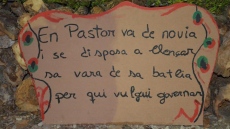 En Pastor va de novia
i se disposa a llençar
sa vara de sa batlia
per qui vulgui governar